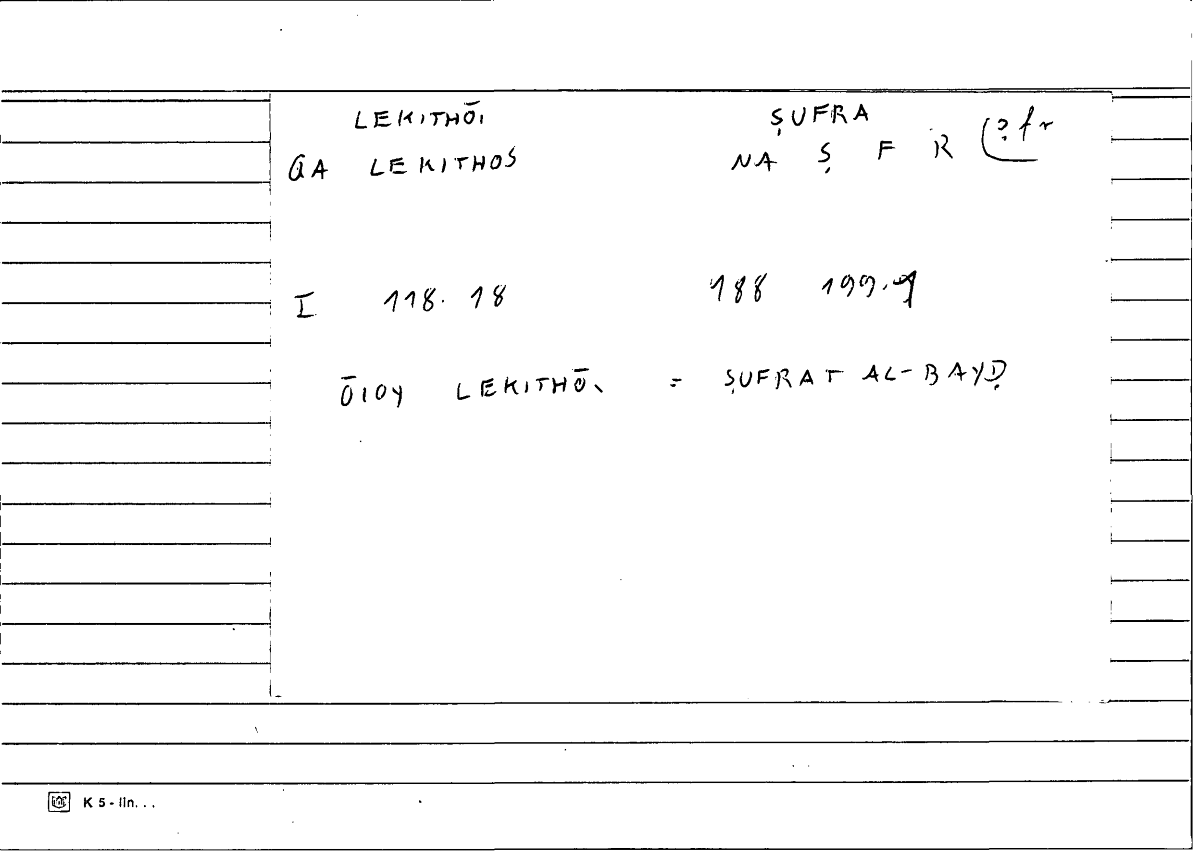 LEKITHŌI ṢUFRA
GA LEKITHOS NA Ṣ F R ṣfr
I 118.18 188 199.9
ŌIOY LEKITHŌI = ṢUFRAT AL-BAYḌ
K 5 - lin...